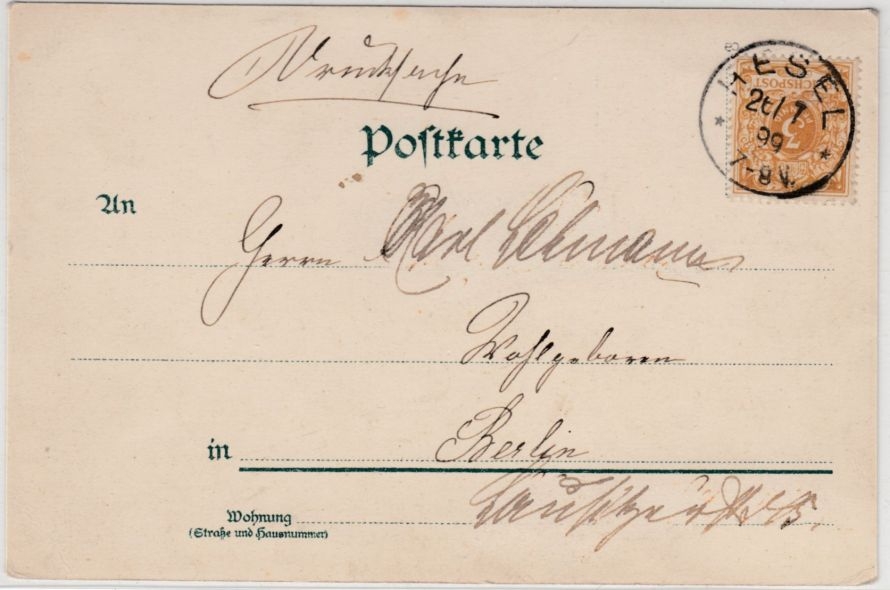 Drucksache
Postkarte
HESEL
26/7
99
7-8V.
REICHSPOST
3
An
Herrn Karl Lehmann
Wohlgeboren
in Berlin
Wohnung Lausitzerstr.
(Straße und Hausnummer)